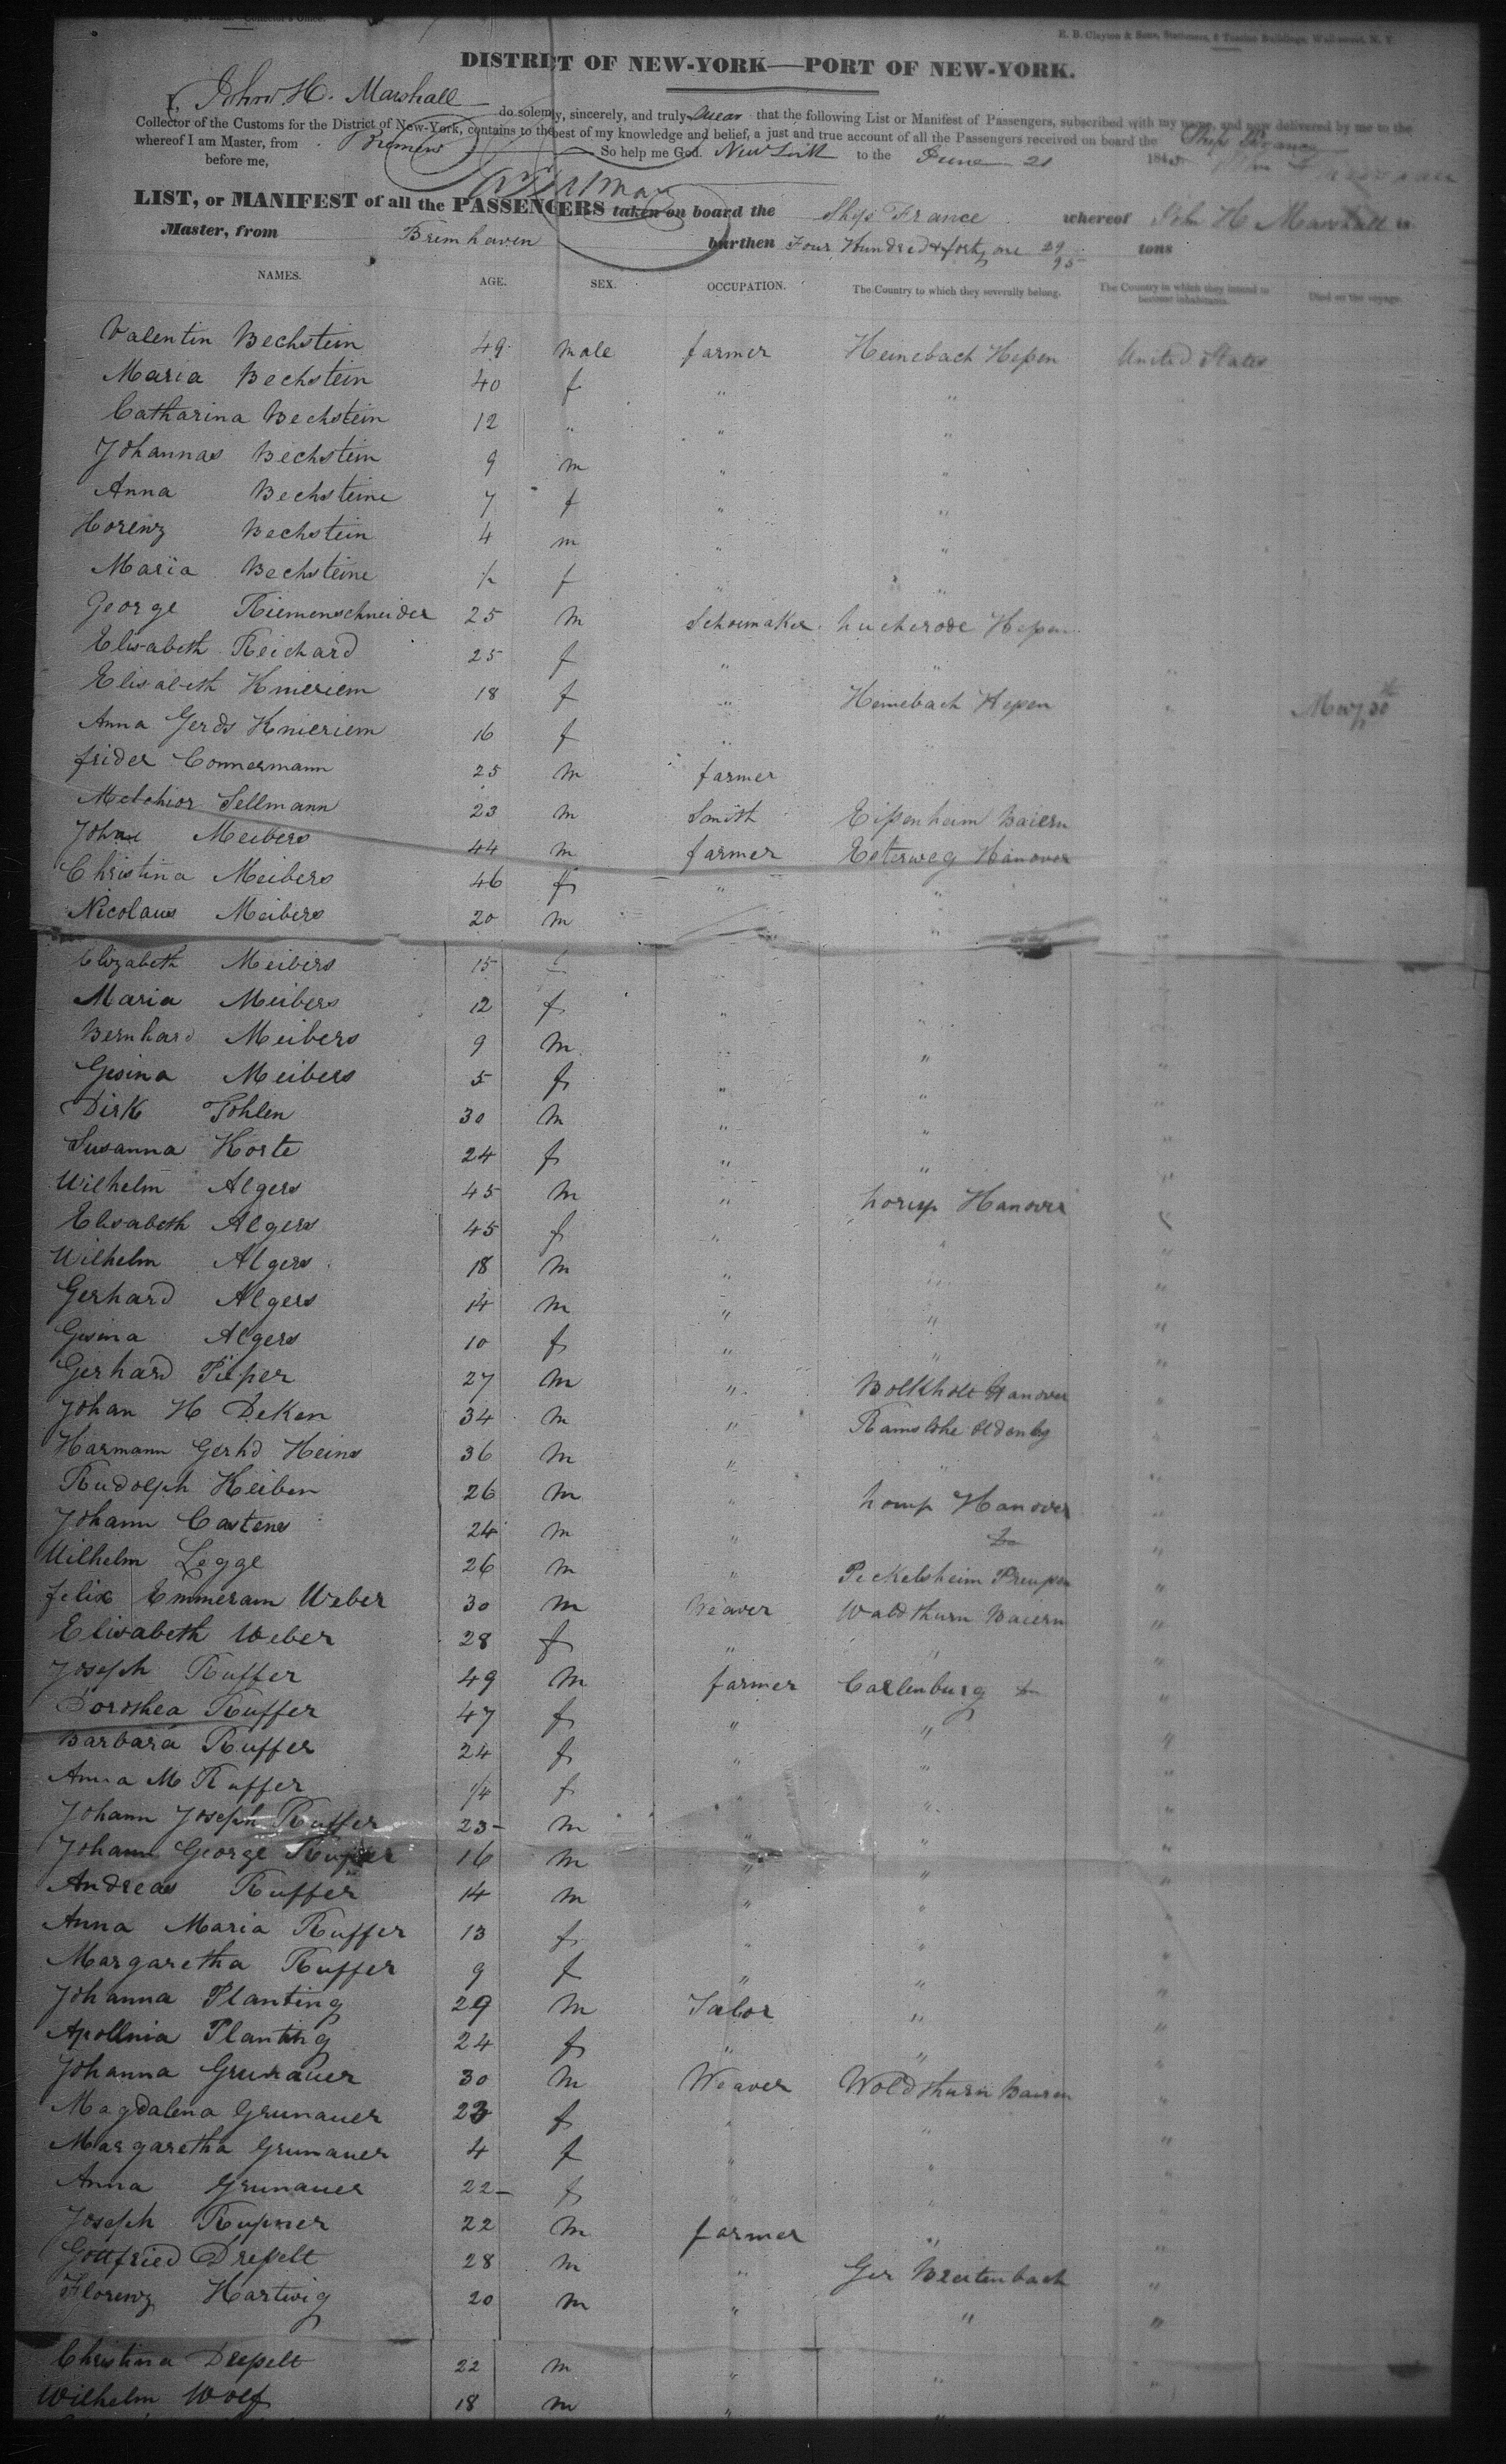 R. B. Clayton & Sons, Stationers, Buildings, Wall-street, N. Y.
DISTRICT OF NEW-YORK—PORT OF NEW-YORK.
I, John H. Marshall do solemnly, sincerely, and truly swear that the following List or Manifest of Passengers, subscribed with my name, and now delivered by me to the
Collector of the Customs for the District of New-York, contains to the best of my knowledge and belief, a just and true account of all the Passengers received on board the Ship France
whereof I am Master, from Bremen to the
So help me God. New York June 21 184
before me,
LIST, or MANIFEST of all the PASSENGERS taken on board the Ship France whereof John H Marshall is
Master, from Bremhaven burthen Four Hundred & forty one 29/95 tons
NAMES. AGE. SEX. OCCUPATION. The Country to which they severally belong. The Country in which they intend to become inhabitants. Died on the voyage.
Valentin Bechstein 49 male farmer Heinebach Hessen United States
Maria Bechstein 40 f " " "
Catharina Bechstein 12 " " "
Johannas Bechstein 9 m " "
Anna Bechsteine 7 f " "
Horenz Bechstein 4 m " "
Maria Bechsteine ½ f " "
George Riemenschneider 25 m Schoimaker Lucherode Hessen
Elisabeth Reichard 25 f " " "
Elisabeth Kmeriem 18 f " Heinebach Hessen " May 30th
Anna Gerds Knieriem 16 f " "
frider Connermann 25 m farmer
Melchior Sellmann 23 m Smith Eissenheim Baiern
John Meibers 44 m farmer Esterweg Hanover
Christina Meibers 46 f " " "
Nicolaus Meibers 20 m " "
Elizabeth Meibers 15 f "
Maria Meibers 12 f " " "
Bernhard Meibers 9 m " " "
Gesina Meibers 5 f " " "
Dirk Tohlen 30 m " " "
Susanna Korte 24 f " " "
Wilhelm Algers 45 m " Lorup Hanover
Elisabeth Algers 45 f " "
Wilhelm Algers 18 m " " "
Gerhard Algers 14 m " " "
Gesina Algers 10 f " " "
Gerhard Pieper 27 m " Bolkholt Hanover "
Johan H Deken 34 m " Ramslohe Oldenbg "
Harmann Gerhd Heins 36 m " " "
Rudolph Keiben 26 m " Lorup Hanover "
Johann Castens 24 m " Do "
Wilhelm Legge 26 m " Peckelsheim Preussen "
felix Emmeram Weber 30 m Weaver Waldthurn Baiern "
Elisabeth Weber 28 f " " "
Joseph Ruffer 49 m farmer Carlenburg Do "
Dorothea Ruffer 47 f " " "
Barbara Ruffer 24 f " " "
Anna M Ruffer ¼ f " " "
Johann Joseph Ruffer 23 m " " "
Johann George Ruffer 16 m " " "
Andreas Ruffer 14 m " " "
Anna Maria Ruffer 13 f " " "
Margaretha Ruffer 9 f " " "
Johanna Planting 29 m Tailor " "
Apollnia Planting 24 f " " "
Johanna Grunauer 30 m Weaver Woldthurn Baiern "
Magdalena Grunauer 23 f " " "
Margaretha Grunauer 4 f " " "
Anna Grunauer 22 f " " "
Joseph 22 m farmer " "
Gottfried Dresselt 28 m " Ger Breitenbach "
Florenz Hartwig 20 m " " "
Christina Dresselt 22 m " " "
Wilhelm Wolf 18 m " "